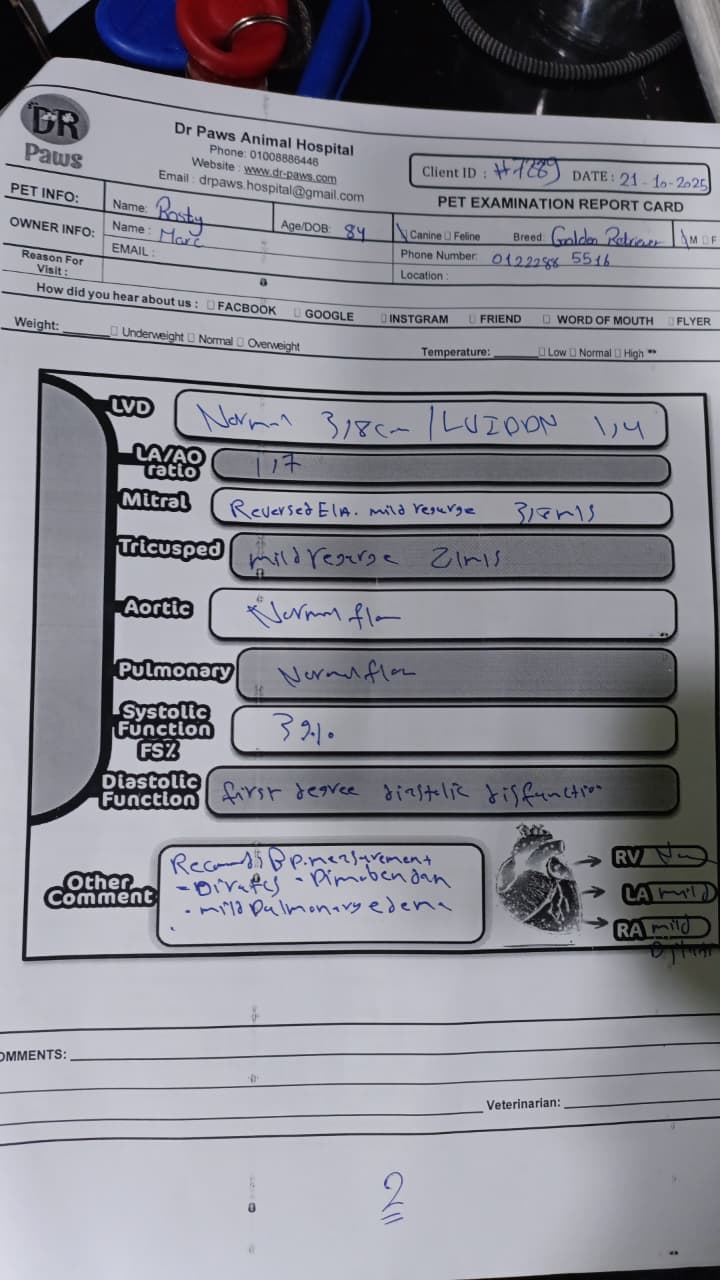 DR
Paws
Dr Paws Animal Hospital
Phone: 01008886446
Website : www.dr-paws.com
Email : drpaws.hospital@gmail.com
Client ID : #7289 DATE : 21-10-2025
PET EXAMINATION REPORT CARD
PET INFO: Name: Rosty Age/DOB: 8y Canine Feline Breed: Golden Retriever M F
OWNER INFO: Name : Marc Phone Number: 0122288 5516
EMAIL :
Reason For Visit : Location :
How did you hear about us : FACBOOK GOOGLE INSTGRAM FRIEND WORD OF MOUTH FLYER
Weight: Underweight Normal Overweight Temperature: Low Normal High
LVD Normal 3,8cm / LVIDDN 1,4
LA/AO ratio 1,7
Mitral Reversed E/A. mild resurge 3,8m/s
Tricusped mild resurge 2m/s
Aortic Normal flow
Pulmonary Normal flow
Systolic Function FS% 39%
Diastolic Function first degree diastolic disfunction
Other Comment
Bp. measurement
- Pimobendan
- mild Pulmonary edema
RV
LA mild
RA mild
OMMENTS:
Veterinarian:
2